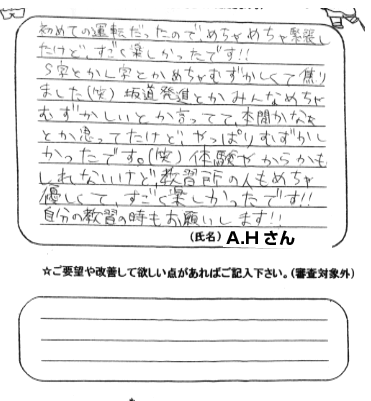 初めての運転だったので、めちゃめちゃ緊張し
たけど、すごく楽しかったです!!
S字とかL字とかめちゃむずかしくて焦り
ました(笑) 坂道発進とかみんなめちゃ
むずかしいとか言ってて、本間かなぁ
とか思ってたけど、やっぱりむずかし
かったです。(笑) 体験やからかも
しれないけど教習所の人もめちゃ
優しくて、すごく楽しかったです!!
自分の教習の時もお願いします!!
(氏名) A.Hさん
☆ご要望や改善して欲しい点があればご記入下さい。(審査対象外)